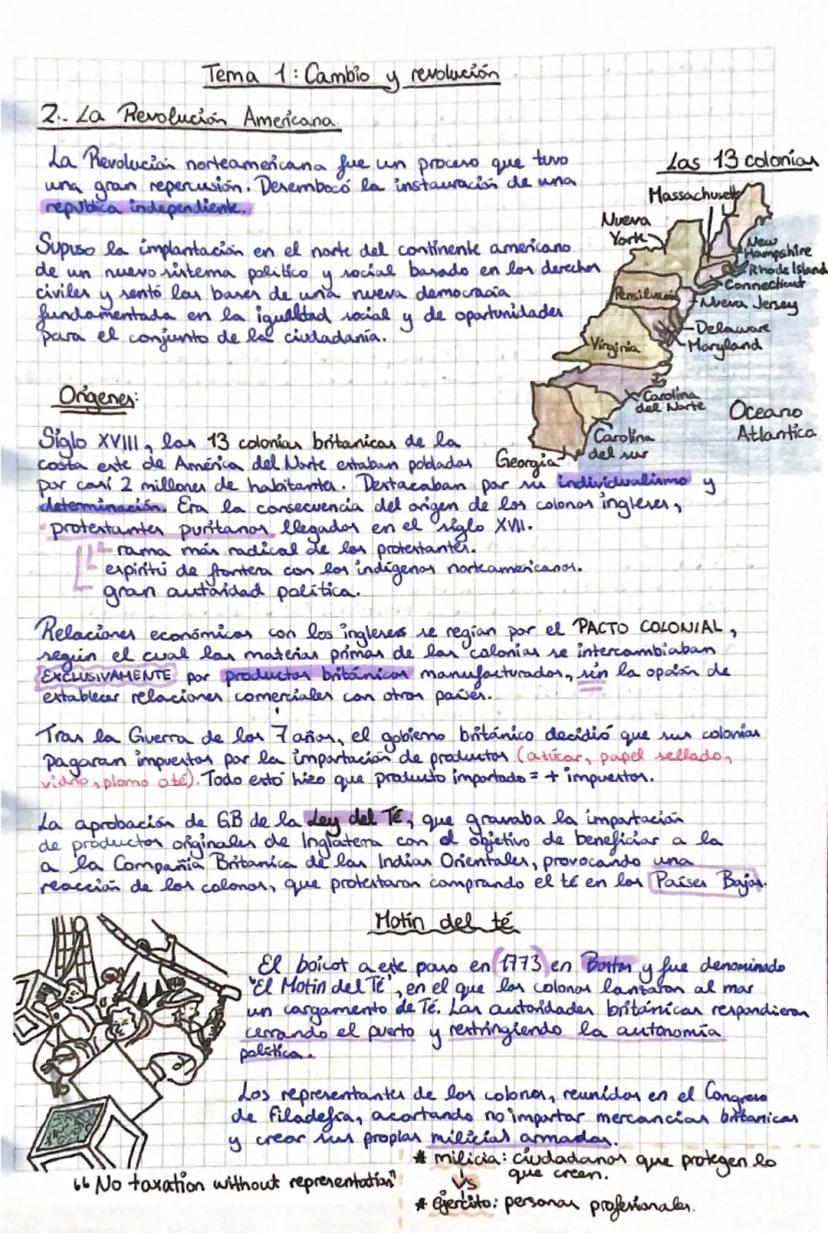 Tema 1: Cambio y revolución
2.- La Revolución Americana.
La Revolución norteamericana fue un proceso que tuvo
una gran repercusión. Desembocó la instauración de una
republica independiente.
Supuso la implantación en el norte del continente americano
de un nuevo sistema político y social basado en los derechos
civiles y sentó las bases de una nueva democracia
fundamentada en la igualdad social y de oportunidades
para el conjunto de la ciudadanía.
Las 13 colonias
Massachusett
Nueva
York
New
Hampshire
Rhode Island
Connecticut
Pensilvania
Nueva Jersey
Delaware
Maryland
Virginia
Carolina
del Norte
Oceano
Atlantica
Carolina
del sur
Georgia
Orígenes:
Siglo XVIII, las 13 colonias britanicas de la
costa este de América del Norte estaban pobladas
por casi 2 millones de habitantes. Destacaban por su individualismo y
determinación. Era la consecuencia del origen de los colonos ingleses,
protestantes puritanos llegados en el siglo XVII.
rama más radical de los protestantes.
espíritu de frontera con los indígenas norteamericanos.
gran autoridad política.
Relaciones económicas con los ingleses se regían por el PACTO COLONIAL,
según el cual las materias primas de las colonias se intercambiaban
EXCLUSIVAMENTE por productos británicos manufacturados, sin la opción de
establecer relaciones comerciales con otros países.
Tras la Guerra de los 7 años, el gobierno británico decidió que sus colonias
pagaran impuestos por la importación de productos (azúcar, papel sellado,
vidrio, plomo o té). Todo esto hizo que producto importado = + impuestos.
La aprobación de GB de la Ley del Té, que gravaba la importación
de productos originales de Inglaterra con el objetivo de beneficiar a la
a la Compañia Britanica de las Indias Orientales, provocando una
reacción de los colonos, que protestaron comprando el té en los Países Bajos.
Motín del té
El boicot a este paso en (1773) en Boston y fue denominado
"El Motín del Té", en el que los colonos lanzaron al mar
un cargamento de Té. Las autoridades británicas respondieron
cerrando el puerto y restringiendo la autonomía
política.
Los representantes de los colonos, reunidos en el Congreso
de Filadelfia, acortando no importar mercancias britanicas
y crear sus propias milicias armadas.
"No taxation without representation"
* milicia: ciudadanos que protegen lo
que creen.
VS
* ejercito: personas profesionales.